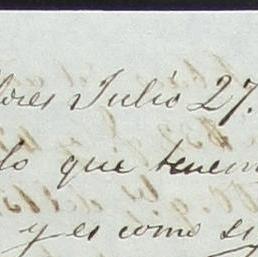 lores Julió 27.
lo que tenem
y es como si